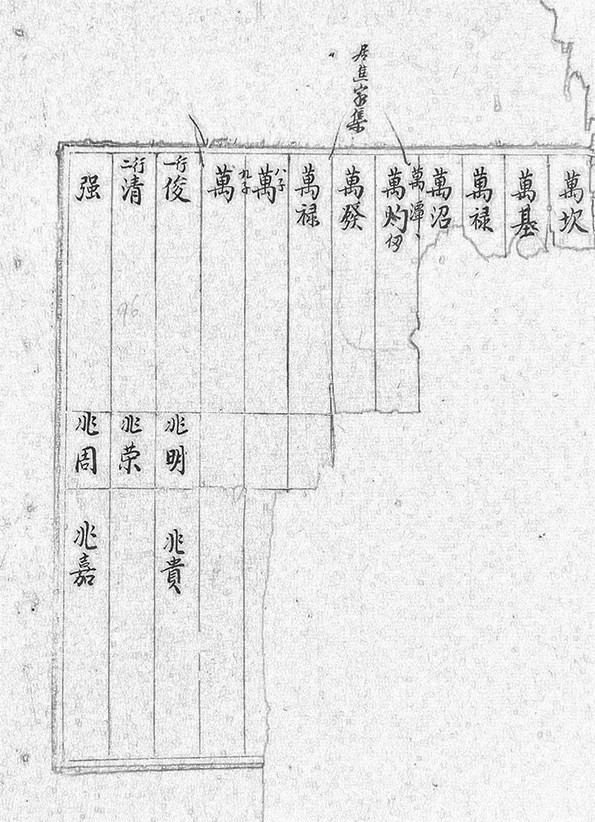 居進家集
萬坎
萬基
萬禄
萬沼
萬潭
萬灼
萬發
萬禄
八子
萬
九子
萬
一行
俊
二行
清
强
兆明
兆荣
兆周
兆貴
兆嘉
96